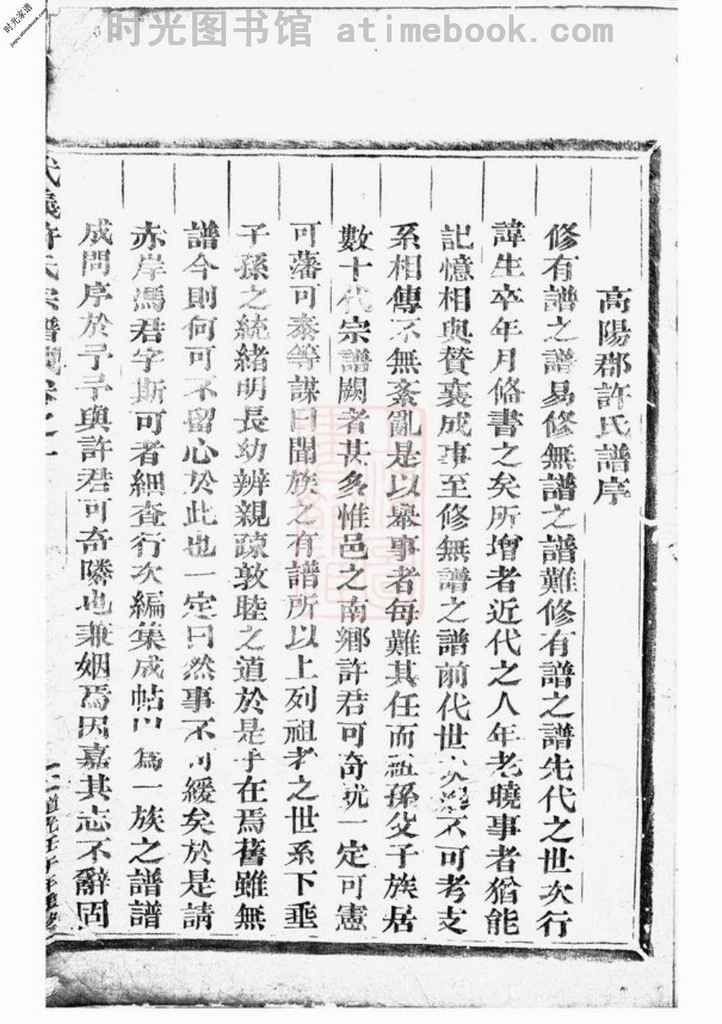 时光图书馆 atimebook.com
时光家谱
高陽郡許氏譜序
修有譜之譜易修無譜之譜難修有譜之譜先代之世次行
諱生卒年月俻書之矣所增者近代之人年老曉事者猶能
記憶相與贊襄成事至修無譜之譜前代世次不可考支
系相傳不無紊亂是以舉事者每難其任而祖孫父子族居
數十代宗譜闕者甚多惟邑之南鄉許君可奇一定可憲
可藩可泰等謀曰聞族之有譜所以上列祖考之世系下垂
子孫之統緒明長幼辨親疎敦睦之道於是乎在焉舊雖無
譜今則何可不留心於此也一定曰然事不可緩矣於是請
赤岸馮君字斯可者細查行次編集成帖以為一族之譜譜
成問序於予予與許君可奇隣也兼姻焉因嘉其志不辭固
義許氏宗譜卷之一
道光壬午年重修